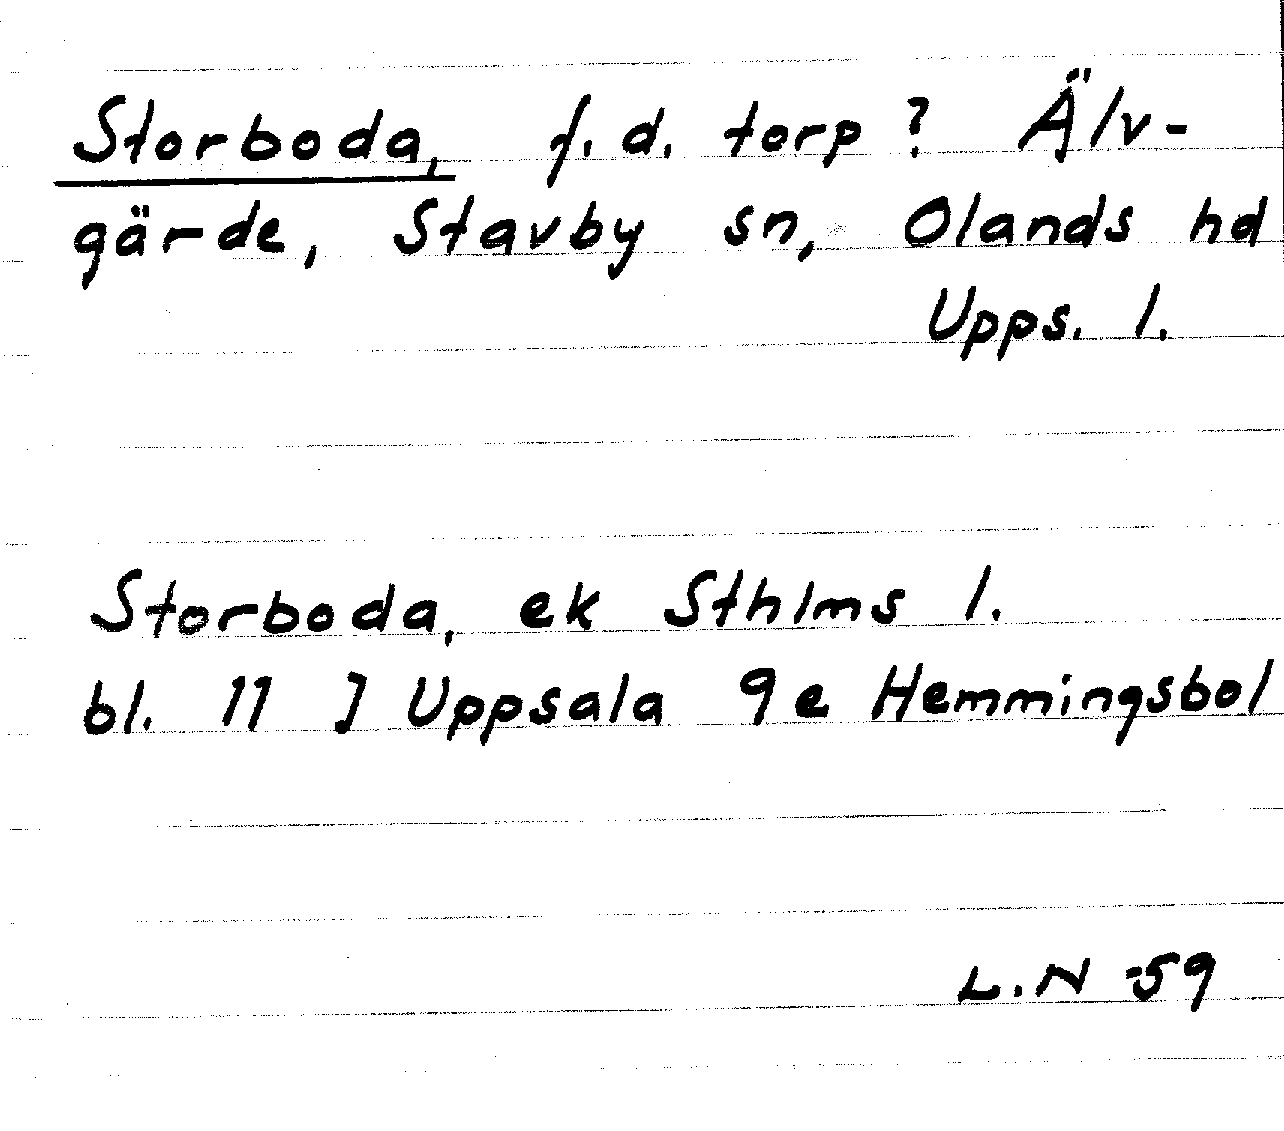 Storboda, f.d. torp? Älv-
gärde, Stavby sn, Olands hd
Upps. l.
Storboda, ek Sthlms l.
bl. 11 J Uppsala 9e Hemmingsbol
L.N -59